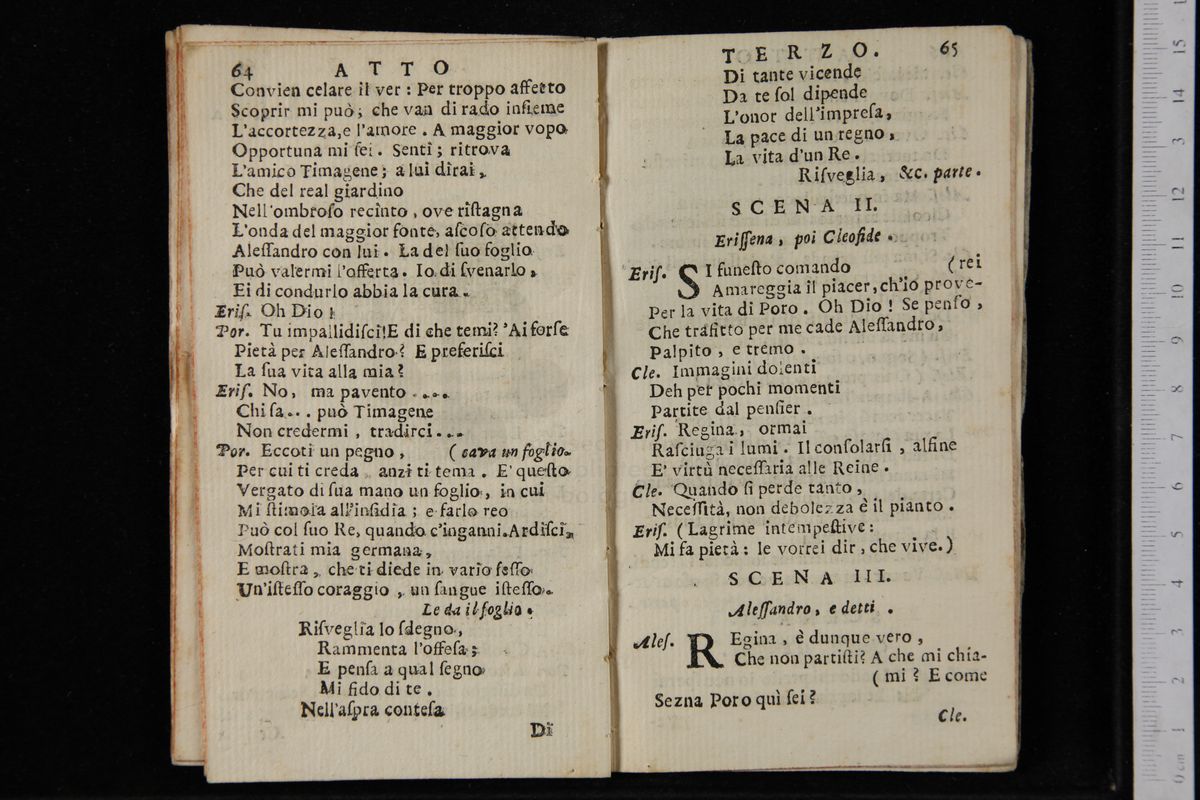 64 ATTO
Convien celare il ver : Per troppo affetto
Scoprir mi può ; che van di rado inſieme
L'accortezza, e l'amore . A maggior vopo
Opportuna mi ſei . Sentì ; ritrova
L'amico Timagene ; a lui dirai ,
Che del real giardino
Nell'ombroſo recinto , ove riſtagna
L'onda del maggior fonte, aſcoſo attendo
Aleſſandro con lui . La del ſuo foglio
Può valermi l'offerta . Io di ſvenarlo ,
Ei di condurlo abbia la cura .
Eriſ. Oh Dio !
Por. Tu impallidiſci! E di che temi? 'Ai forſe
Pietà per Aleſſandro ? E preferiſci
La ſua vita alla mia ?
Eriſ. No , ma pavento ....
Chi ſa... può Timagene
Non credermi , tradirci ...
Por. Eccoti un pegno , ( cava un foglio.
Per cui ti creda , anzi ti tema . E' queſto
Vergato di ſua mano un foglio , in cui
Mi ſtimola all'inſidia ; e farlo reo
Può col ſuo Re, quando c'inganni. Ardiſci,
Moſtrati mia germana ,
E moſtra , che ti diede in vario ſeſſo
Un'iſteſſo coraggio , un ſangue iſteſſo .
Le da il foglio .
Riſveglia lo ſdegno ,
Rammenta l'offeſa ;
E penſa a qual ſegno
Mi fido di te .
Nell'aſpra conteſa
Di
TERZO. 65
Di tante vicende
Da te ſol dipende
L'onor dell'impreſa ,
La pace di un regno ,
La vita d'un Re .
Riſveglia , &c. parte .
SCENA II.
Eriſſena , poi Cleofide .
Eriſ. SI funeſto comando ( rei
Amareggia il piacer, ch'io prove-
Per la vita di Poro . Oh Dio ! Se penſo ,
Che trafitto per me cade Aleſſandro ,
Palpito , e tremo .
Cle. Immagini dolenti
Deh per pochi momenti
Partite dal penſier .
Eriſ. Regina , ormai
Raſciuga i lumi . Il conſolarſi , alfine
E' virtù neceſſaria alle Reine .
Cle. Quando ſi perde tanto ,
Neceſſità, non debolezza è il pianto .
Eriſ. ( Lagrime intempeſtive :
Mi fa pietà : le vorrei dir , che vive. )
SCENA III.
Aleſſandro , e detti .
Aleſ. REgina , è dunque vero ,
Che non partiſti? A che mi chia-
( mi ? E come
Sezna Poro quì ſei ?
Cle.